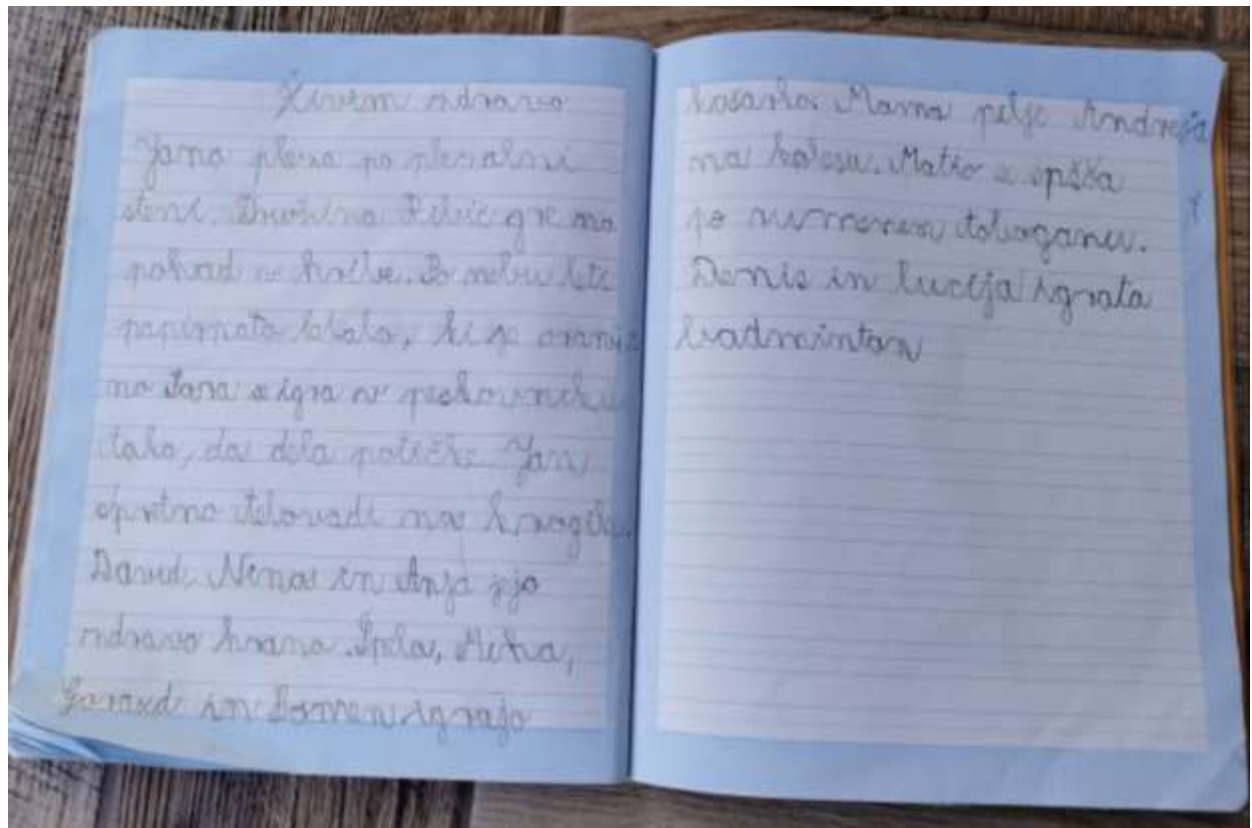 Živim zdravo
Jana pleza po plezalni
steni. Družina Ribič gre na
pohod v hribe. Po nebu leti
papirnato letalo, ki je oranž
no Sara se igra v peskovniku
tako, da dela potičke. Jan
spretno telovadi na krogih.
David, Nena in Anja jejo
zdravo hrano. Špela, Miha,
in Domen igrajo
košarko. Mama pelje Andreja
na kolesu. Matic se spušča
po rumenem toboganu.
Denis in Lucija igrata
badminton